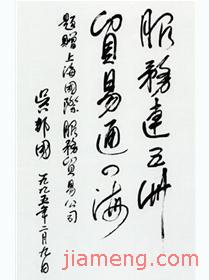 服務達五洲
貿易通四海
題贈上海國際服務貿易公司
吳邦國
一九九五年二月九日
jiameng.com